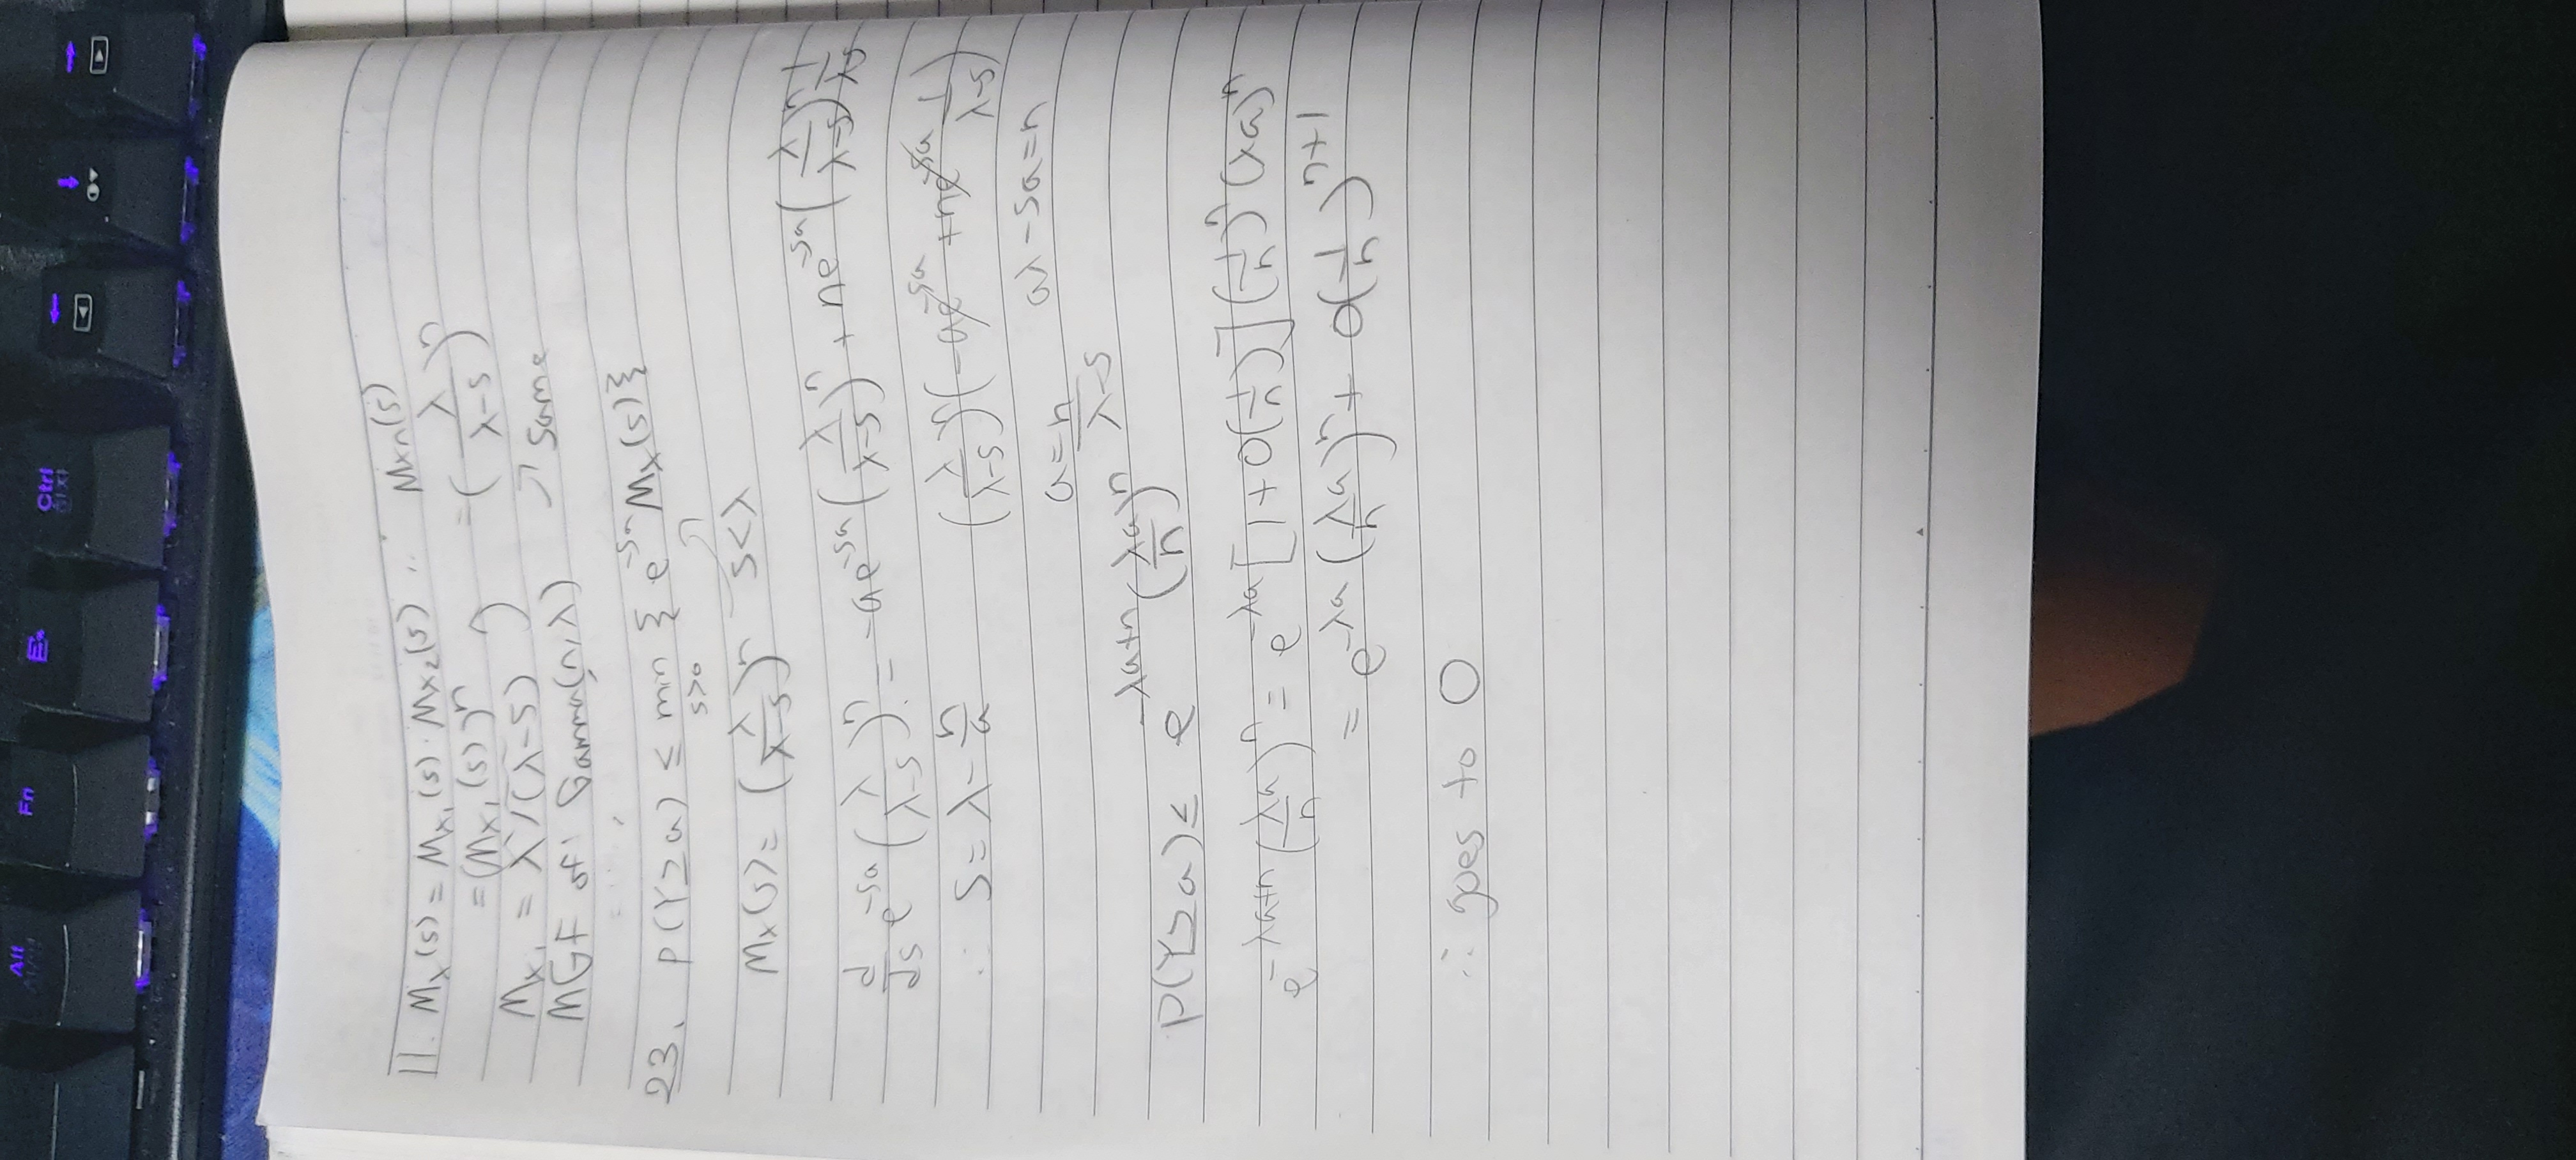 Alt
Fn
Ctrl
11. Mx(s) = Mx₁(s) · Mx₂(s) ·· Mxn(s)
= (Mx₁(s))ⁿ = (λ/(λ-s))ⁿ
Mx₁ = λ/(λ-s)
MGF of Gamma(n,λ) ↗ Same
23. P(Y≥a) ≤ min { e^-sa Mx(s)}
s>0
Mx(s) = (λ/(λ-s))ⁿ s<λ
d/ds e^-sa (λ/(λ-s))ⁿ = -ae^-sa (λ/(λ-s))ⁿ + ne^-sa (λ/(λ-s))ⁿ 1/(λ-s)
∴ s = λ - n/a (λ/(λ-s))ⁿ (-ae^-sa + ne^-sa 1/(λ-s))
a = n/(λ-s) aλ - sa = n
P(Y≥a) ≤ e^-λa+n (λa/n)ⁿ
e^-λa+n (λa/n)ⁿ = e^-λa [1+O(1/n)] (1/n)ⁿ (λa)ⁿ
= e^-λa (λa/n)ⁿ + O(1/n)^n+1
∴ goes to 0